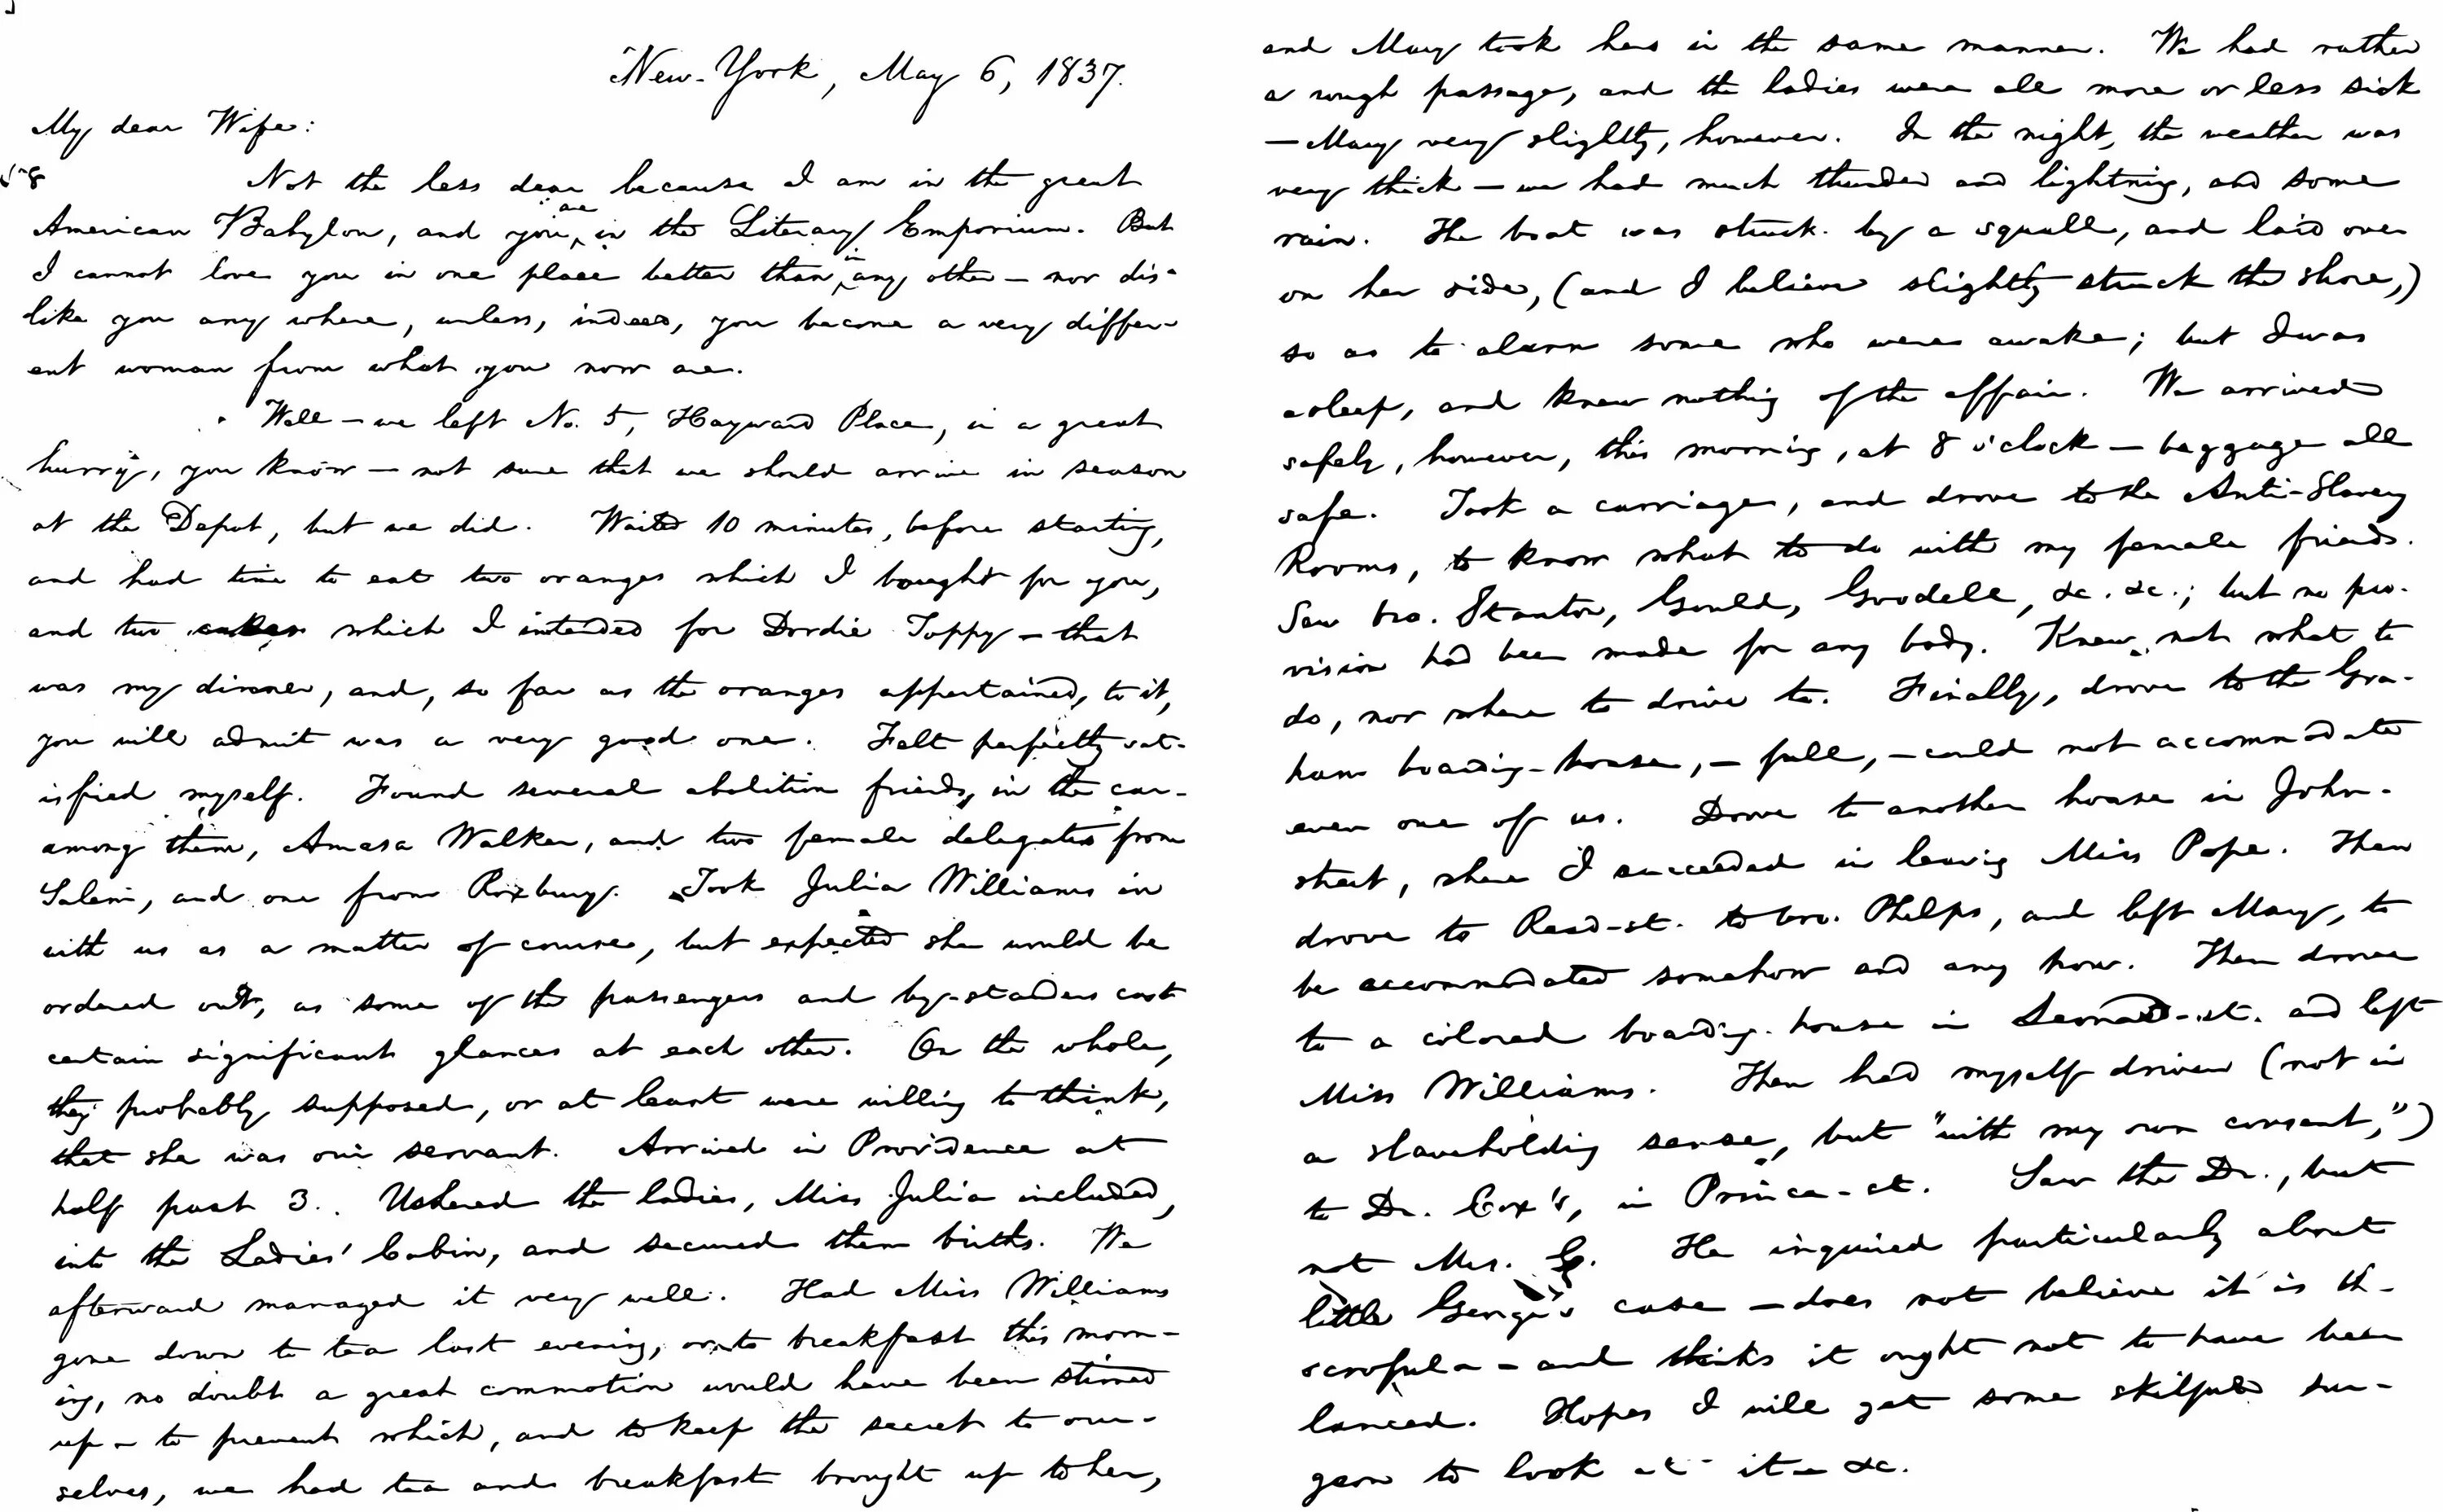 New-York, May 6, 1837.
My dear Wife:
Not the less dear because I am in the great
American Babylon, and you are in the Literary Emporium. But
I cannot love you in one place better than in any other — nor dis-
like you any where, unless, indeed, you become a very differ-
ent woman from what you now are.
Well — we left No. 5, Hayward Place, in a great
hurry, you know — not sure that we should arrive in season
at the Depot, but we did. Waited 10 minutes, before starting,
and had time to eat two oranges which I bought for you,
and two cakes which I intended for Dordie Toppy — that
was my dinner, and, so far as the oranges appertained to it,
you will admit was a very good one. Felt perfectly sat-
isfied myself. Found several abolition friends in the car-
among them, Amasa Walker, and two female delegates from
Salem, and one from Roxbury. Took Julia Williams in
with us as a matter of course, but expected she would be
ordered out, as some of the passengers and by-standers cast
certain significant glances at each other. On the whole,
they probably supposed, or at least were willing to think,
that she was our servant. Arrived in Providence at
half past 3. Ushered the ladies, Miss Julia included,
into the Ladies' Cabin, and secured them births. We
afterward managed it very well. Had Miss Williams
gone down to tea last evening, or to breakfast this morn-
ing, no doubt a great commotion would have been stirred
up — to prevent which, and to keep the secret to our-
selves, we had tea and breakfast brought up to her,
and Mary took hers in the same manner. We had rather
a rough passage, and the ladies were all more or less sick
— Mary very slightly, however. In the night, the weather was
very thick — we had much thunder and lightning, and some
rain. The boat was struck by a squall, and laid over
on her side, (and I believe slightly struck the shore,)
so as to alarm some who were awake; but I was
asleep, and knew nothing of the affair. We arrived
safely, however, this morning, at 8 o'clock — baggage all
safe. Took a carriage, and drove to the Anti-Slavery
Rooms, to know what to do with my female friends.
Saw bro. Stanton, Gould, Goodell, &c. &c.; but no pro-
vision had been made for any body. Knew not what to
do, nor where to drive to. Finally, drove to the Gra-
ham boarding-house, — full, — could not accommodate
even one of us. Drove to another house in John-
street, where I succeeded in leaving Miss Pope. Then
drove to Read-st. to bro. Phelps, and left Mary, to
be accommodated somehow and any how. Then drove
to a colored boarding-house in Leonard-st. and left
Miss Williams. Then had myself driven (not in
a slaveholding sense, but "with my own consent,")
to Dr. Cox's, in Prince-st. Saw the Dr., but
not Mrs. C. He inquired particularly about
little Georgie's case — does not believe it is th-
scrofula — and thinks it ought not to have been
lanced. Hopes I will get some skilful sur-
geon to look at it — &c.